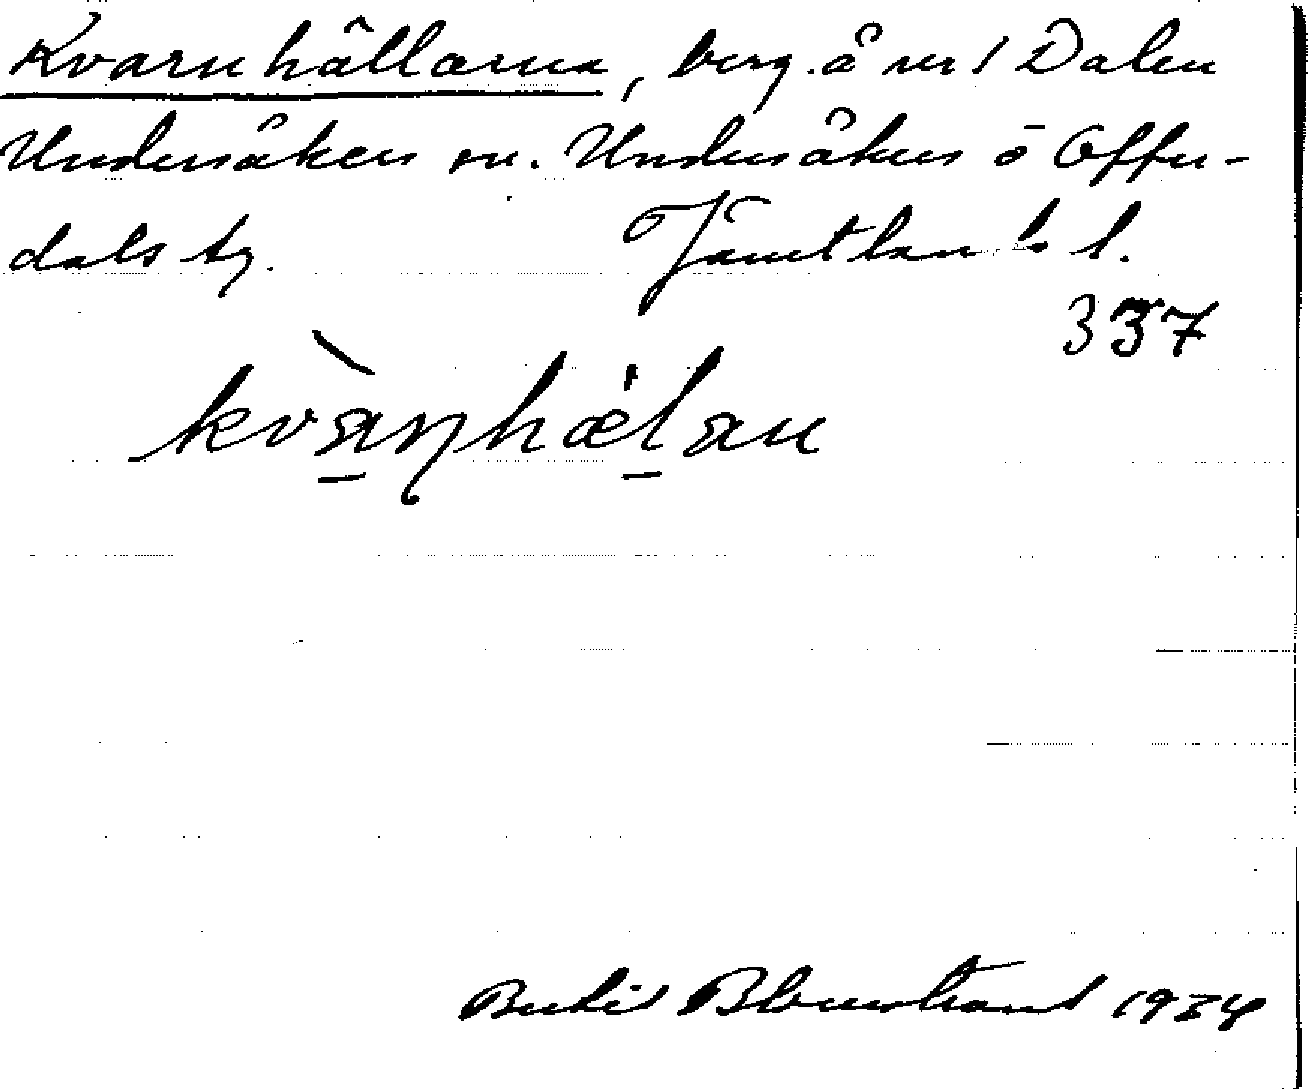 Kvarnhällarna, berg. å nr 1 Dalen
Undersåkers sn. Undersåkers o Offer-
dals tg. Jämtlands l.
337
kvàṇhæl̀an
Bertil Blomstrand 1934